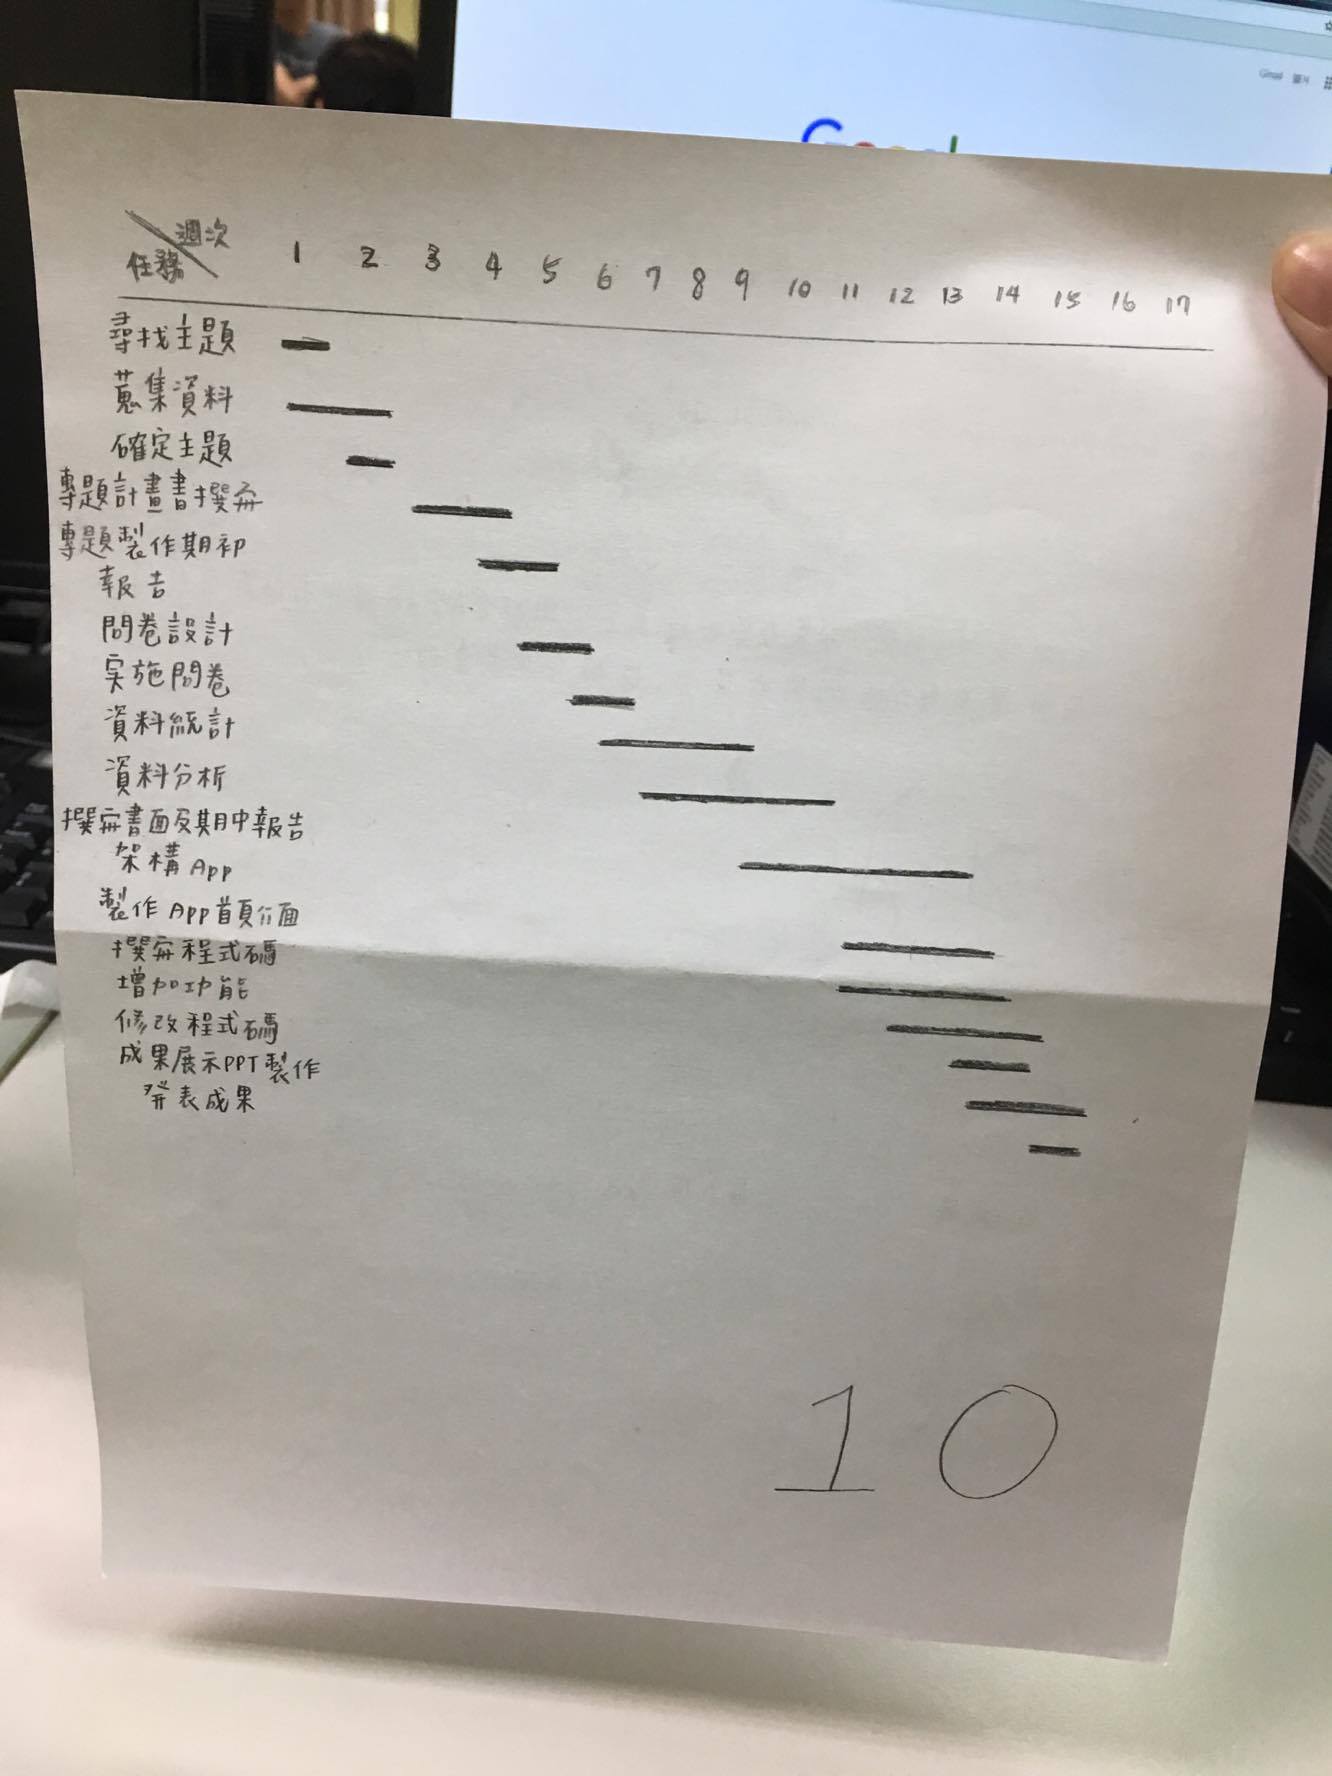 Gmail 圖片
Google
週次
任務
1 2 3 4 5 6 7 8 9 10 11 12 13 14 15 16 17
尋找主題
蒐集資料
確定主題
專題計畫書撰寫
專題製作期初
報告
問卷設計
实施問卷
資料統計
資料分析
撰寫書面及期中報告
架構App
製作App首頁介面
撰寫程式碼
增加功能
修改程式碼
成果展示PPT製作
發表成果
10